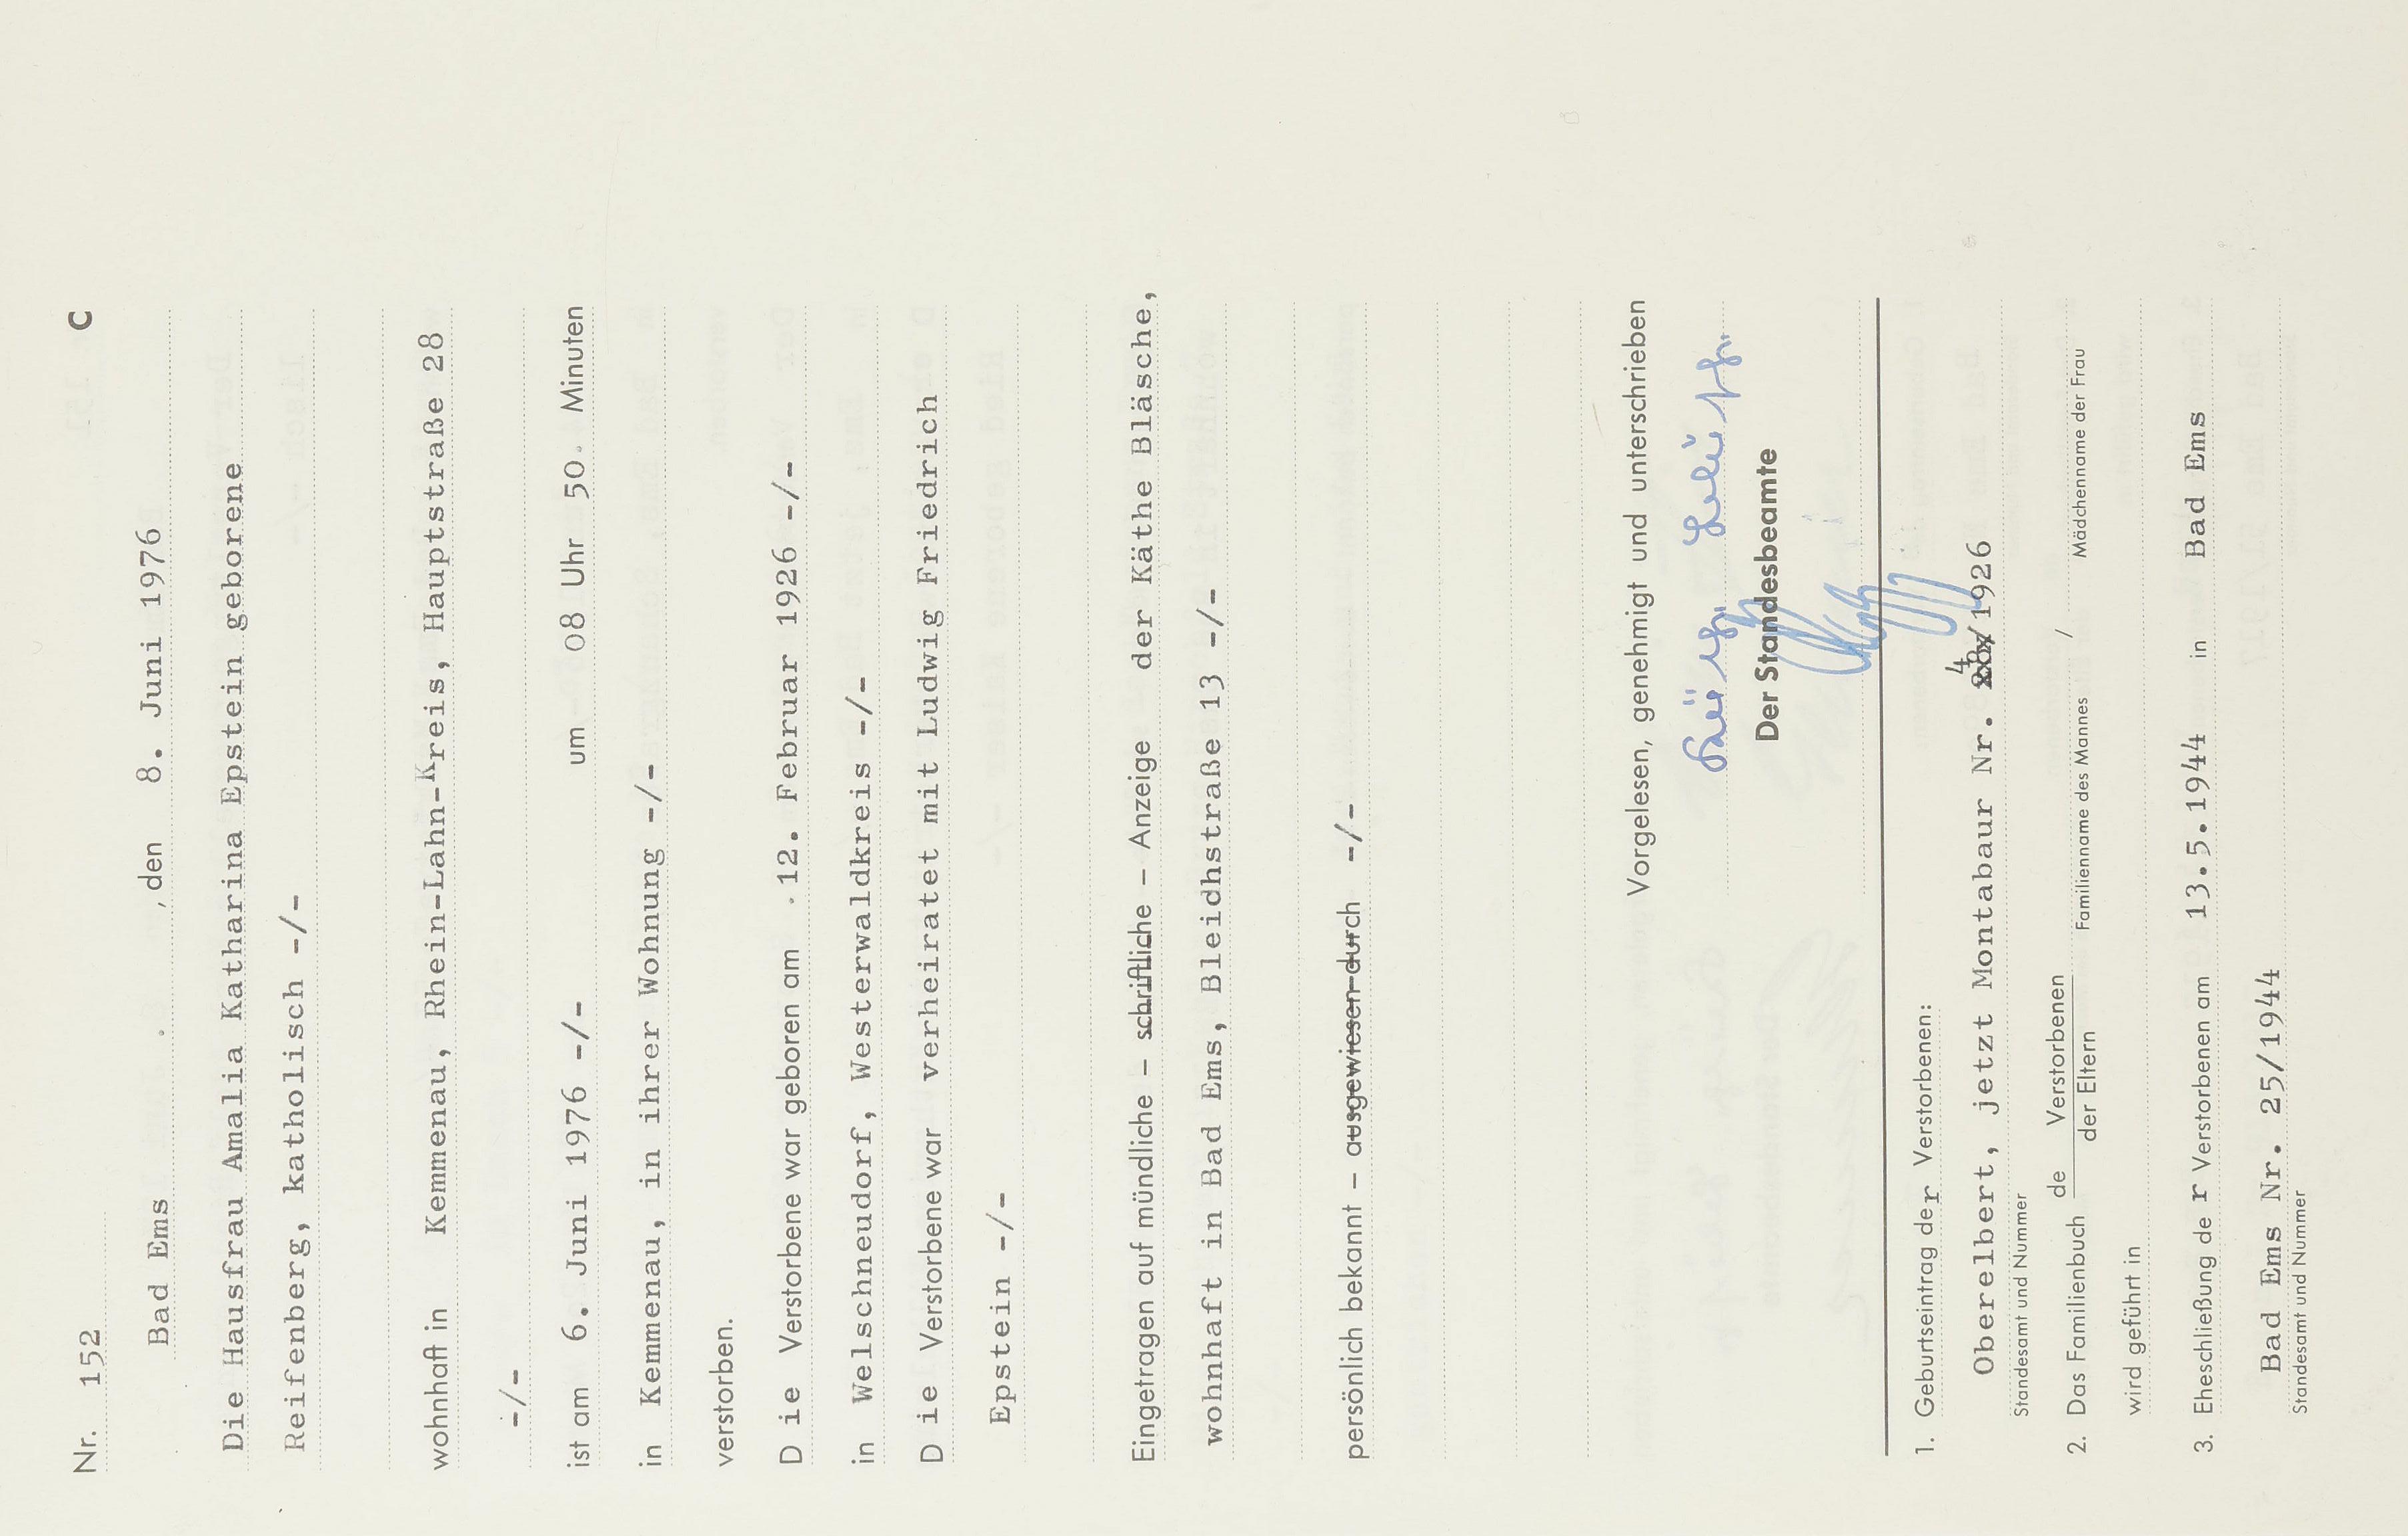 Nr. 152 C
Bad Ems , den 8. Juni 1976
Die Hausfrau Amalia Katharina Epstein geborene
Reifenberg, katholisch -/-
wohnhaft in Kemmenau, Rhein-Lahn-Kreis, Hauptstraße 28
-/-
ist am 6. Juni 1976 -/- um 08 Uhr 50 Minuten
in Kemmenau, in ihrer Wohnung -/-
verstorben.
D ie Verstorbene war geboren am 12. Februar 1926 -/-
in Welschneudorf, Westerwaldkreis -/-
D ie Verstorbene war verheiratet mit Ludwig Friedrich
Epstein -/-
Eingetragen auf mündliche – schriftliche – Anzeige der Käthe Bläsche,
wohnhaft in Bad Ems, Bleidhstraße 13 -/-
persönlich bekannt – ausgewiesen durch -/-
Vorgelesen, genehmigt und unterschrieben
Der Standesbeamte
1. Geburtseintrag der Verstorbenen:
4
Oberelbert, jetzt Montabaur Nr. /1926
Standesamt und Nummer
2. Das Familienbuch de Verstorbenen /
der Eltern Familienname des Mannes Mädchenname der Frau
wird geführt in
3. Eheschließung de r Verstorbenen am 13.5.1944 in Bad Ems
Bad Ems Nr. 25/1944
Standesamt und Nummer